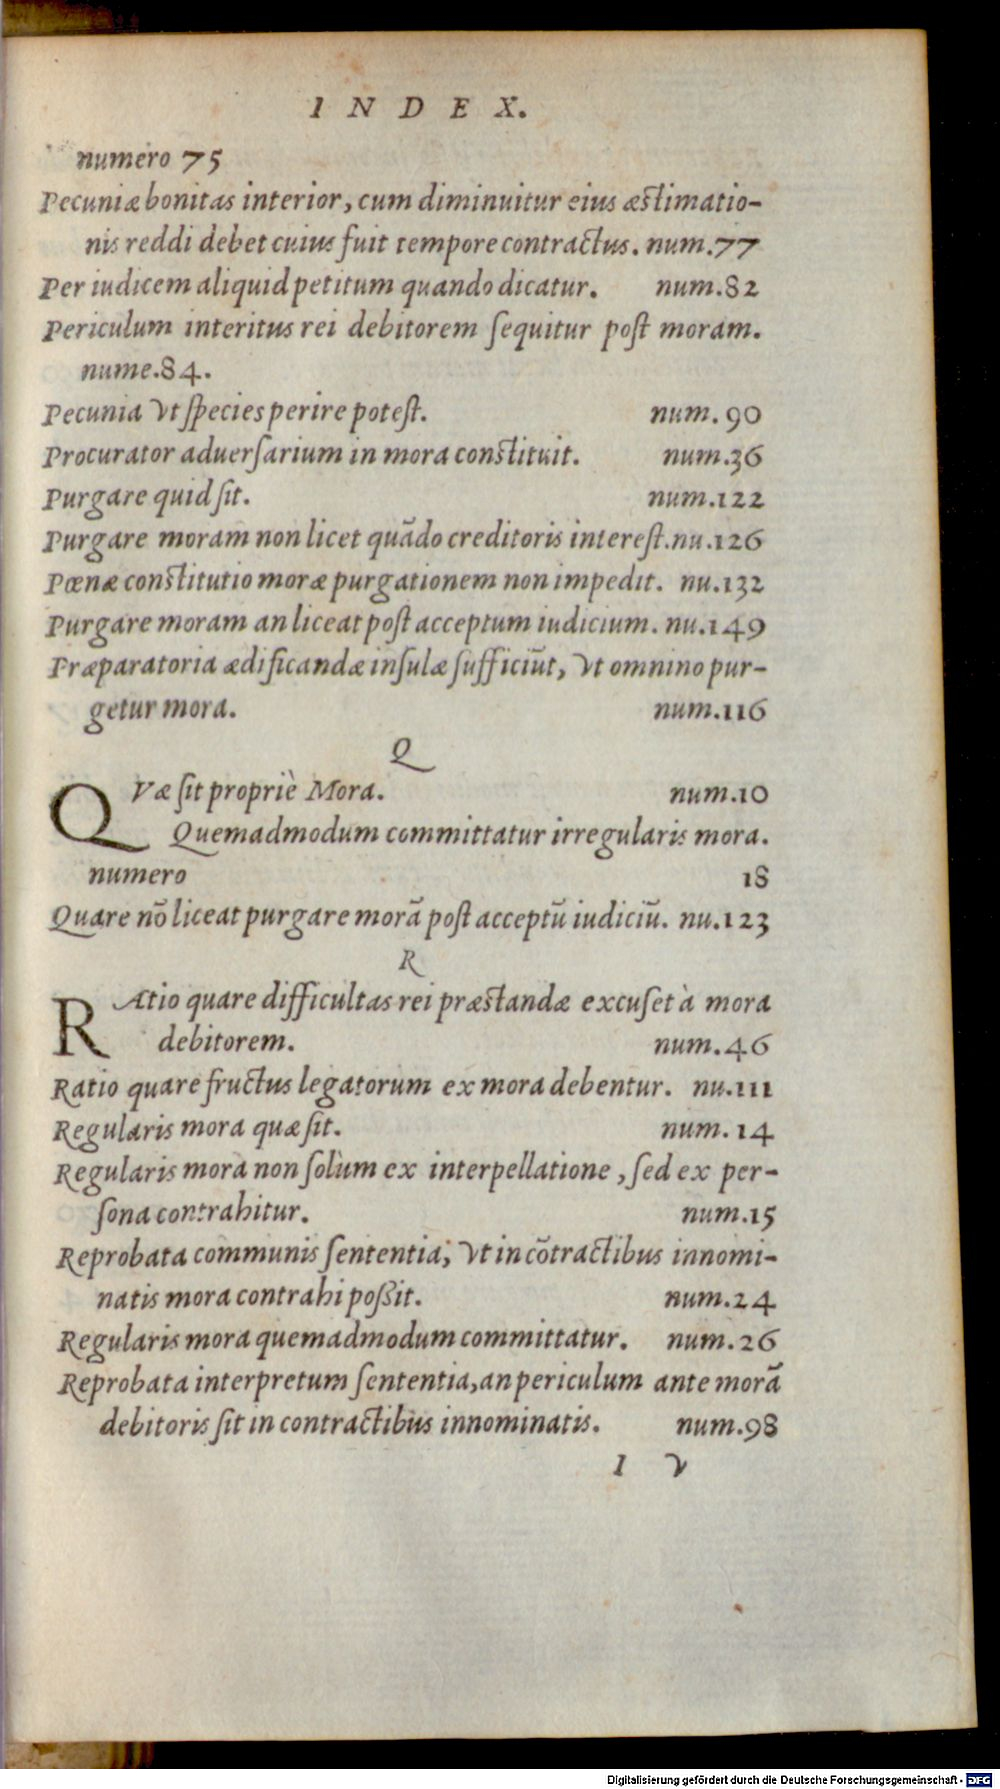 INDEX.
numero 75
Pecuniæ bonitas interior, cum diminuitur eius æstimatio-
nis reddi debet cuius fuit tempore contractus. num.77
Per iudicem aliquid petitum quando dicatur. num.82
Periculum interitus rei debitorem ſequitur poſt moram.
nume.84.
Pecunia vt ſpecies perire poteſt. num. 90
Procurator aduerſarium in mora constituit. num.36
Purgare quid ſit. num.122
Purgare moram non licet quādo creditoris intereſt.nu.126
Pœnæ constitutio moræ purgationem non impedit. nu.132
Purgare moram an liceat poſt acceptum iudicium. nu.149
Præparatoria ædificandæ inſulæ ſufficiūt, vt omnino pur-
getur mora. num.116
Q
QVæ ſit propriè Mora. num.10
Quemadmodum committatur irregularis mora.
numero 18
Quare nō liceat purgare morā poſt acceptū iudiciū. nu.123
R
RAtio quare difficultas rei præstandæ excuſet à mora
debitorem. num.46
Ratio quare fructus legatorum ex mora debentur. nu.111
Regularis mora quæ ſit. num. 14
Regularis mora non ſolùm ex interpellatione, ſed ex per-
ſona contrahitur. num.15
Reprobata communis ſententia, vt in cōtractibus innomi-
natis mora contrahi poßit. num.24
Regularis mora quemadmodum committatur. num. 26
Reprobata interpretum ſententia, an periculum ante morā
debitoris ſit in contractibus innominatis. num.98
I v
Digitalisierung gefördert durch die Deutsche Forschungsgemeinschaft - DFG